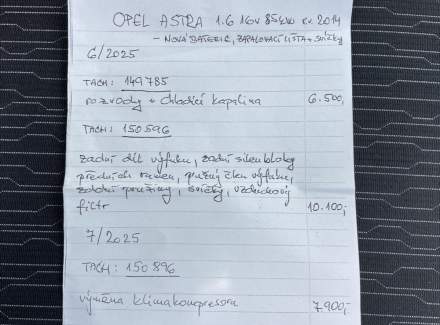 OPEL ASTRA 1.6 16V 85kW r.v. 2014
- NOVÁ BATERIE, ZAPALOVACÍ LIŠTA + svíčky
6/2025
TACH: 149785
rozvody + chladící kapalina 6.500,
TACH: 150596
zadní díl výfuku, zadní silenbloky
předních ramen, pružný člen výfuku,
zadní pružiny, svíčky, vzduchový
filtr 10.100,-
7/2025
TACH: 150896
výměna klimakompresoru 7.900,-